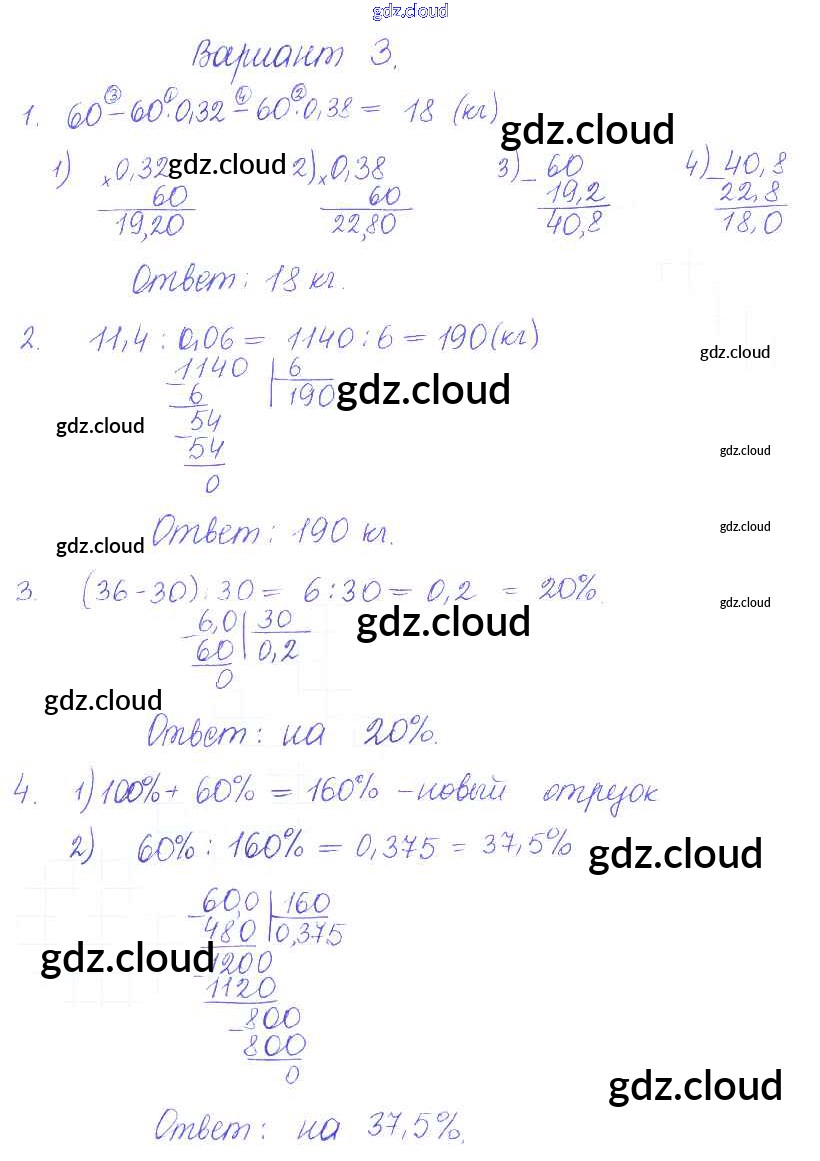 gdz.cloud
Вариант 3.
1. 60 ③ − 60 ① · 0,32 ④ − 60 ② · 0,38 = 18 (кг)
gdz.cloud
1) × 0,32 gdz.cloud 2) × 0,38 3) − 60 4) − 40,8
60 60 19,2 22,8
19,20 22,80 40,8 18,0
Ответ: 18 кг.
2. 11,4 : 0,06 = 1140 : 6 = 190 (кг)
gdz.cloud
− 1140 | 6
6 | 190 gdz.cloud
gdz.cloud − 54
54
gdz.cloud
0
gdz.cloud
Ответ: 190 кг.
gdz.cloud
3. (36 - 30) : 30 = 6 : 30 = 0,2 = 20%.
gdz.cloud
− 6,0 | 30 gdz.cloud
60 | 0,2
0
gdz.cloud
Ответ: на 20%.
4. 1) 100% + 60% = 160% - новый отрезок
2) 60% : 160% = 0,375 = 37,5%
gdz.cloud
− 60,0 | 160
480 | 0,375
gdz.cloud − 1200
1120
− 800
800
0
gdz.cloud
Ответ: на 37,5%.